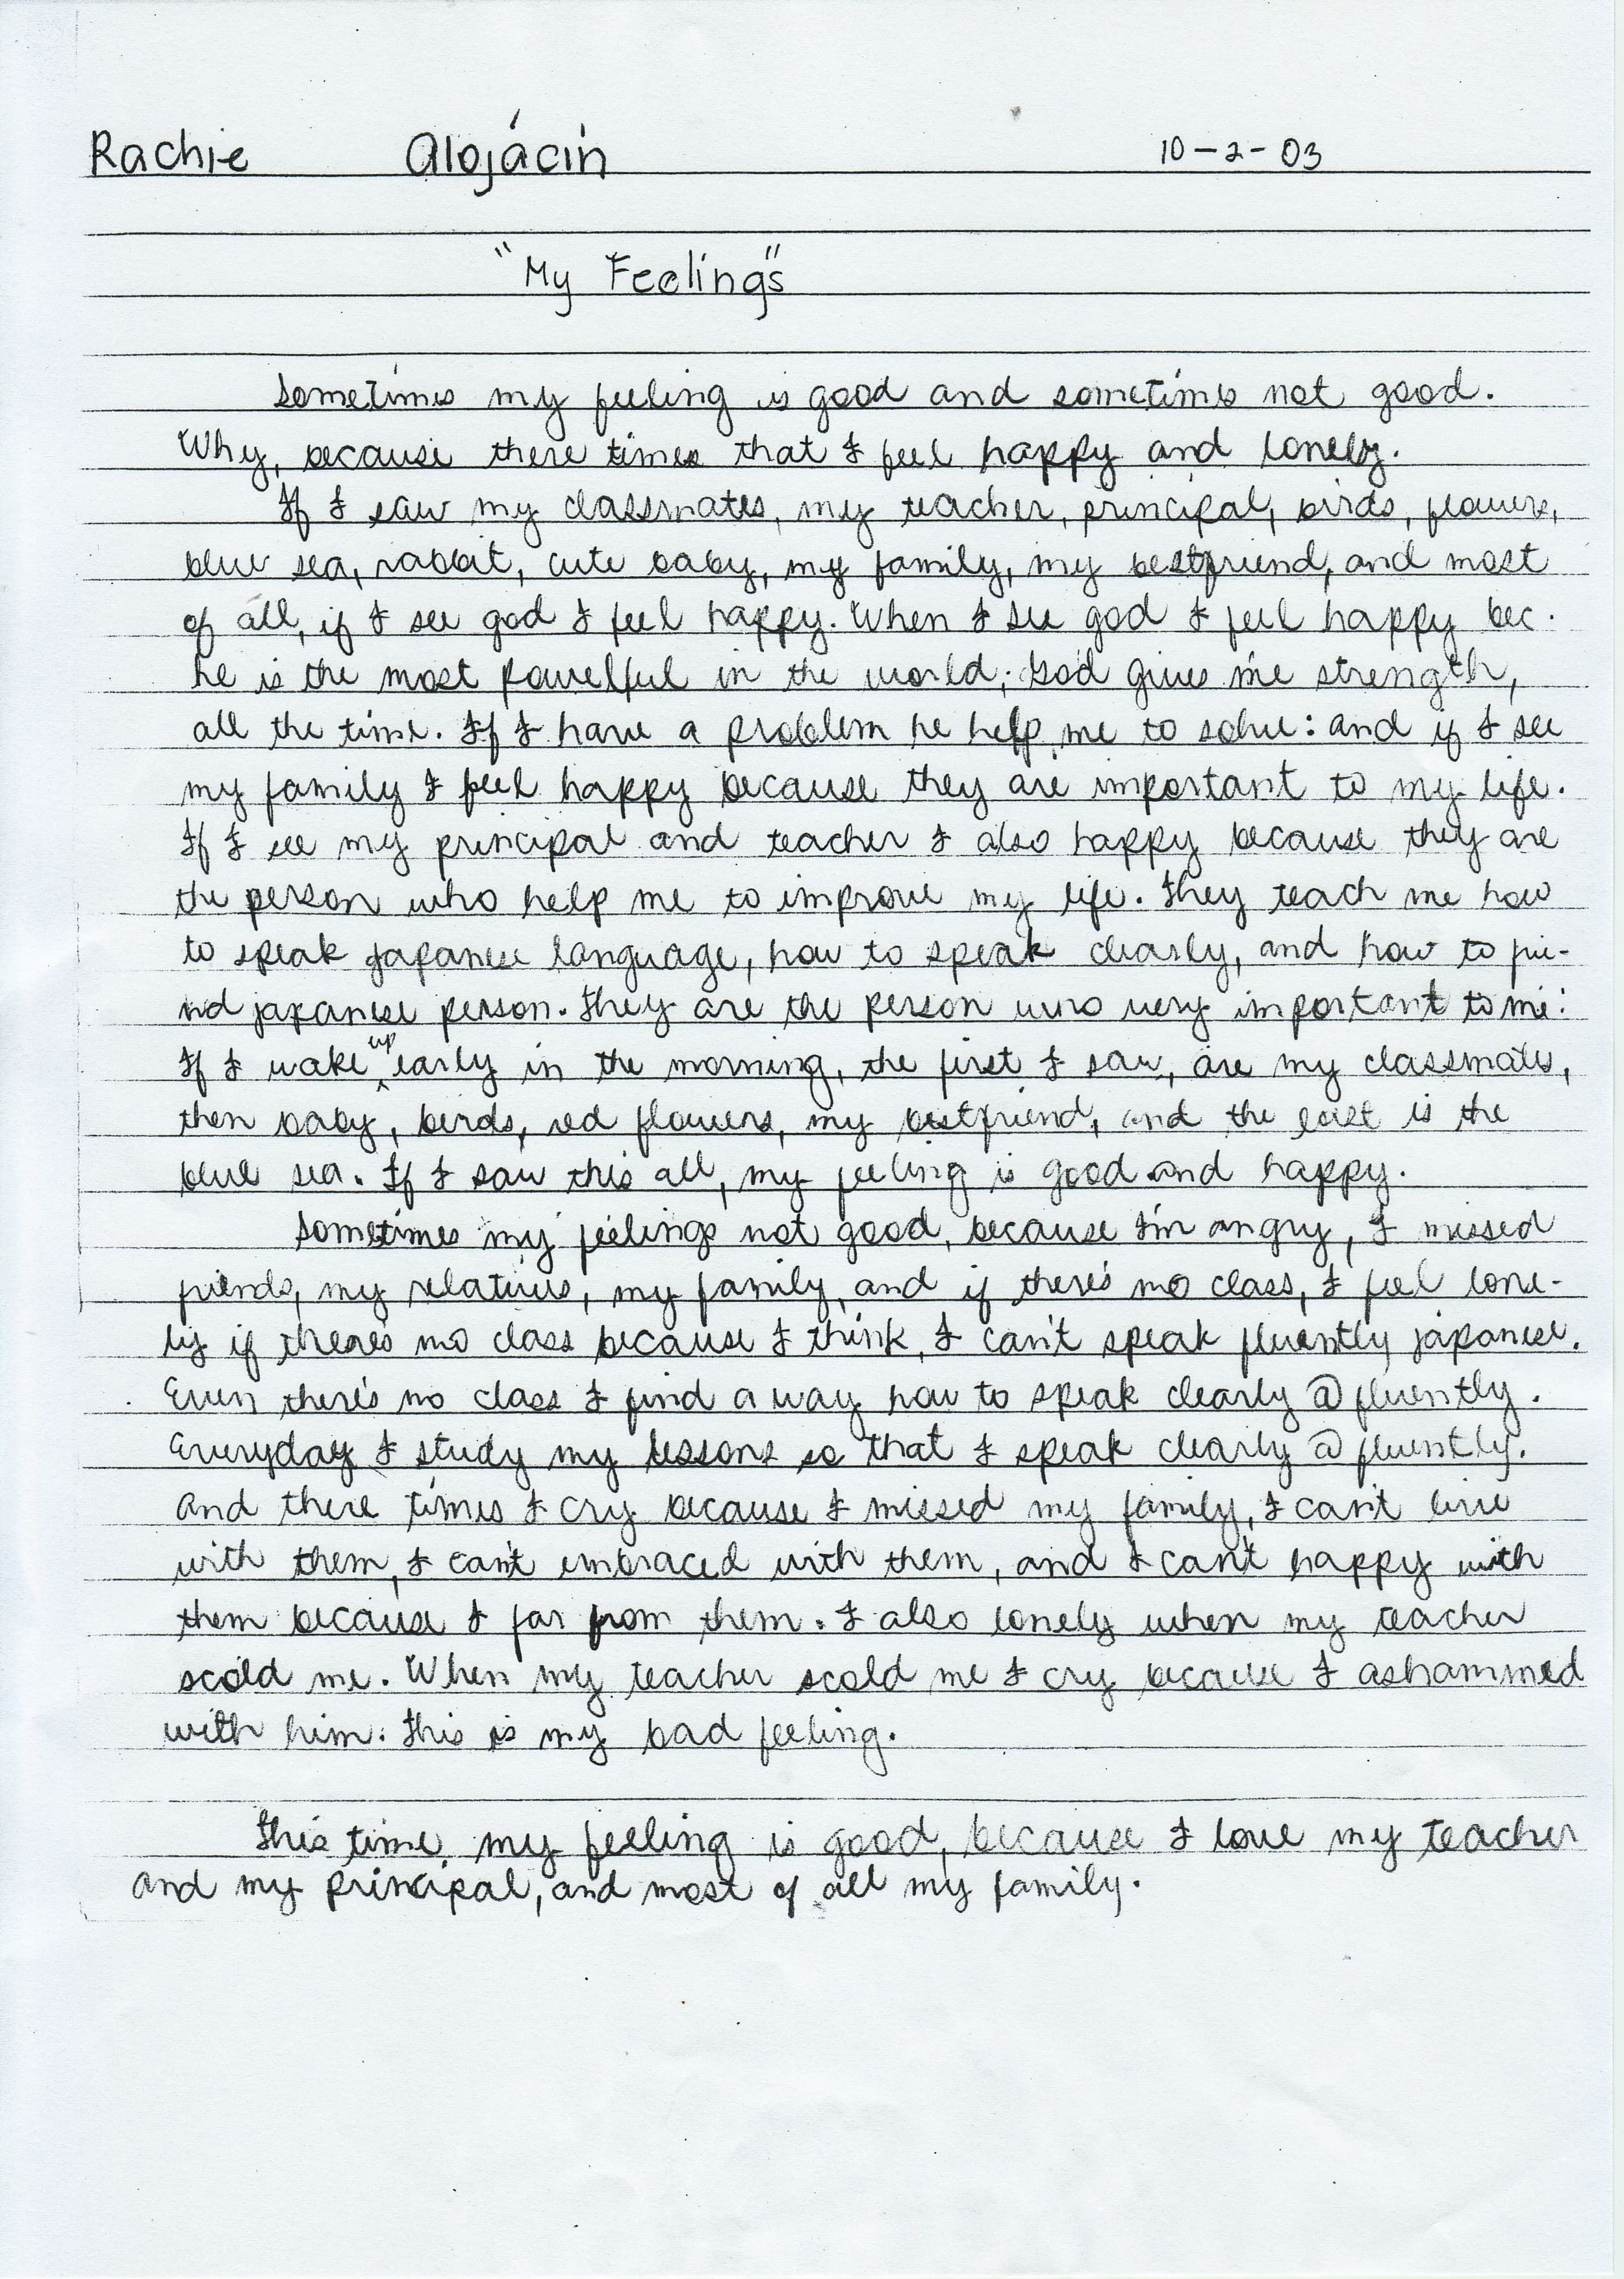 Rachie Alojácin 10-2-03
"My Feelings"
Sometimes my feeling is good and sometimes not good.
Why, because there times that I feel happy and lonely.
If I saw my classmates, my teacher, principal, birds, flowers,
blue sea, rabbit, cute baby, my family, my bestfriend, and most
of all, if I see god I feel happy. When I see god I feel happy bec.
he is the most powelful in the world; God gives me strength,
all the time. If I have a problem he help me to solve: and if I see
my family I feel happy because they are important to my life.
If I see my principal and teacher I also happy because they are
the person who help me to improve my life. They teach me how
to speak japanese language, how to speak clearly, and how to frie-
nd japanese person. They are the person who very important to me:
If I wake up early in the morning, the first I saw, are my classmates,
then baby, birds, red flowers, my bestfriend, and the last is the
blue sea. If I saw this all, my feeling is good and happy.
Sometimes my feelings not good, because I'm angry, I missed
friends, my relatives, my family, and if there's no class, I feel lone-
ly if there's no class because I think, I can't speak fluently japanese.
Even there's no class I find a way how to speak clearly @ fluently.
Everyday I study my lessons so that I speak clearly @ fluently.
And there times I cry because I missed my family, I can't live
with them, I can't embraced with them, and I can't happy with
them because I far from them. I also lonely when my teacher
scold me. When my teacher scold me I cry because I ashammed
with him. This is my bad feeling.
This time my feeling is good, because I love my teacher
and my principal, and most of all my family.